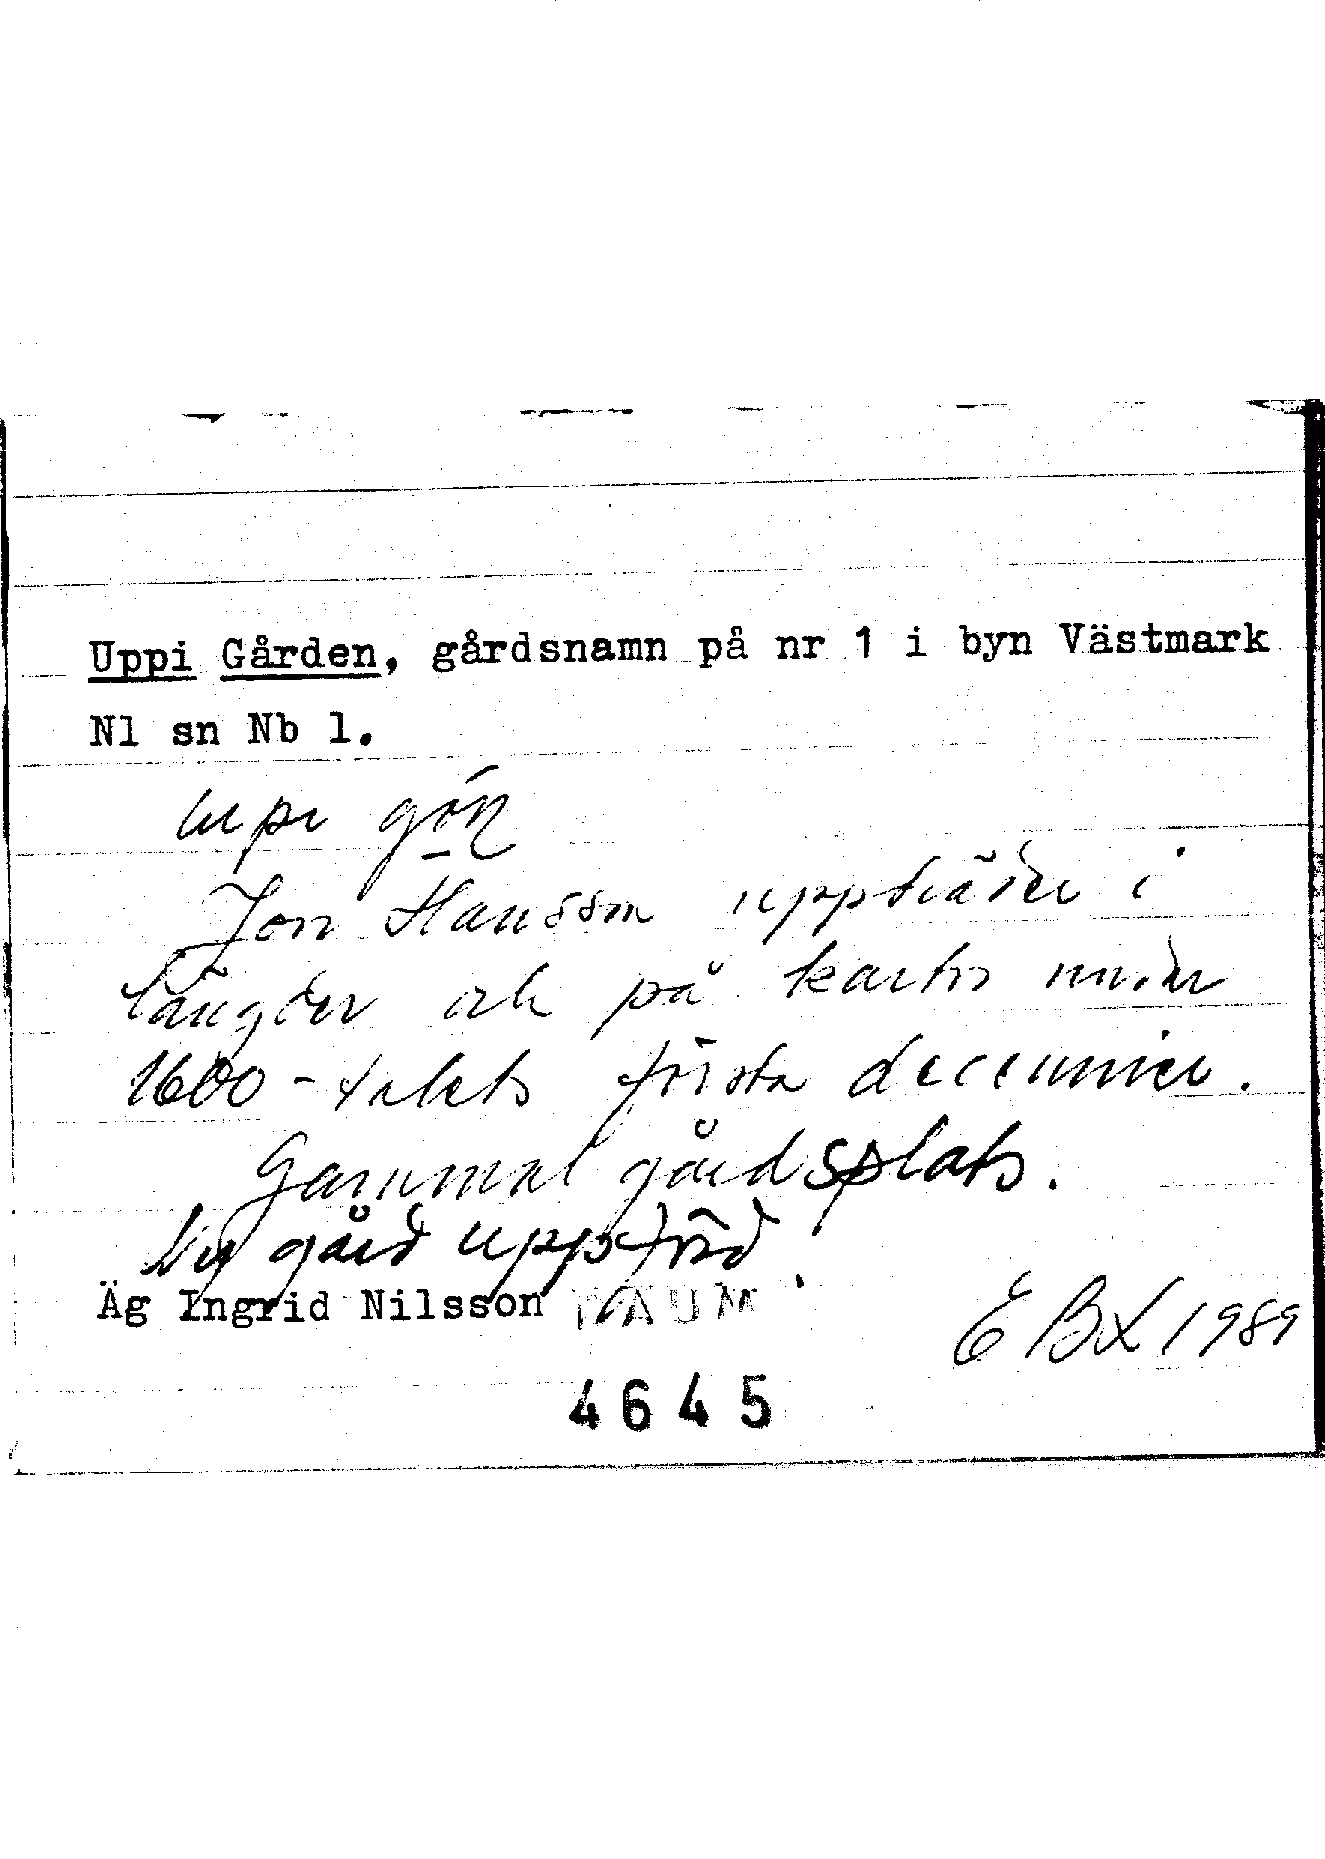 Uppi Gården, gårdsnamn på nr 1 i byn Västmark
Nl sn Nb l.
uppi
Jon Hansson uppträder i
längder och på kartor under
1600-talets första decennier.
Gammal gårdsplats.
Ny gård uppförd.
Äg Ingrid Nilsson DAUM
E Bx 1989
4645